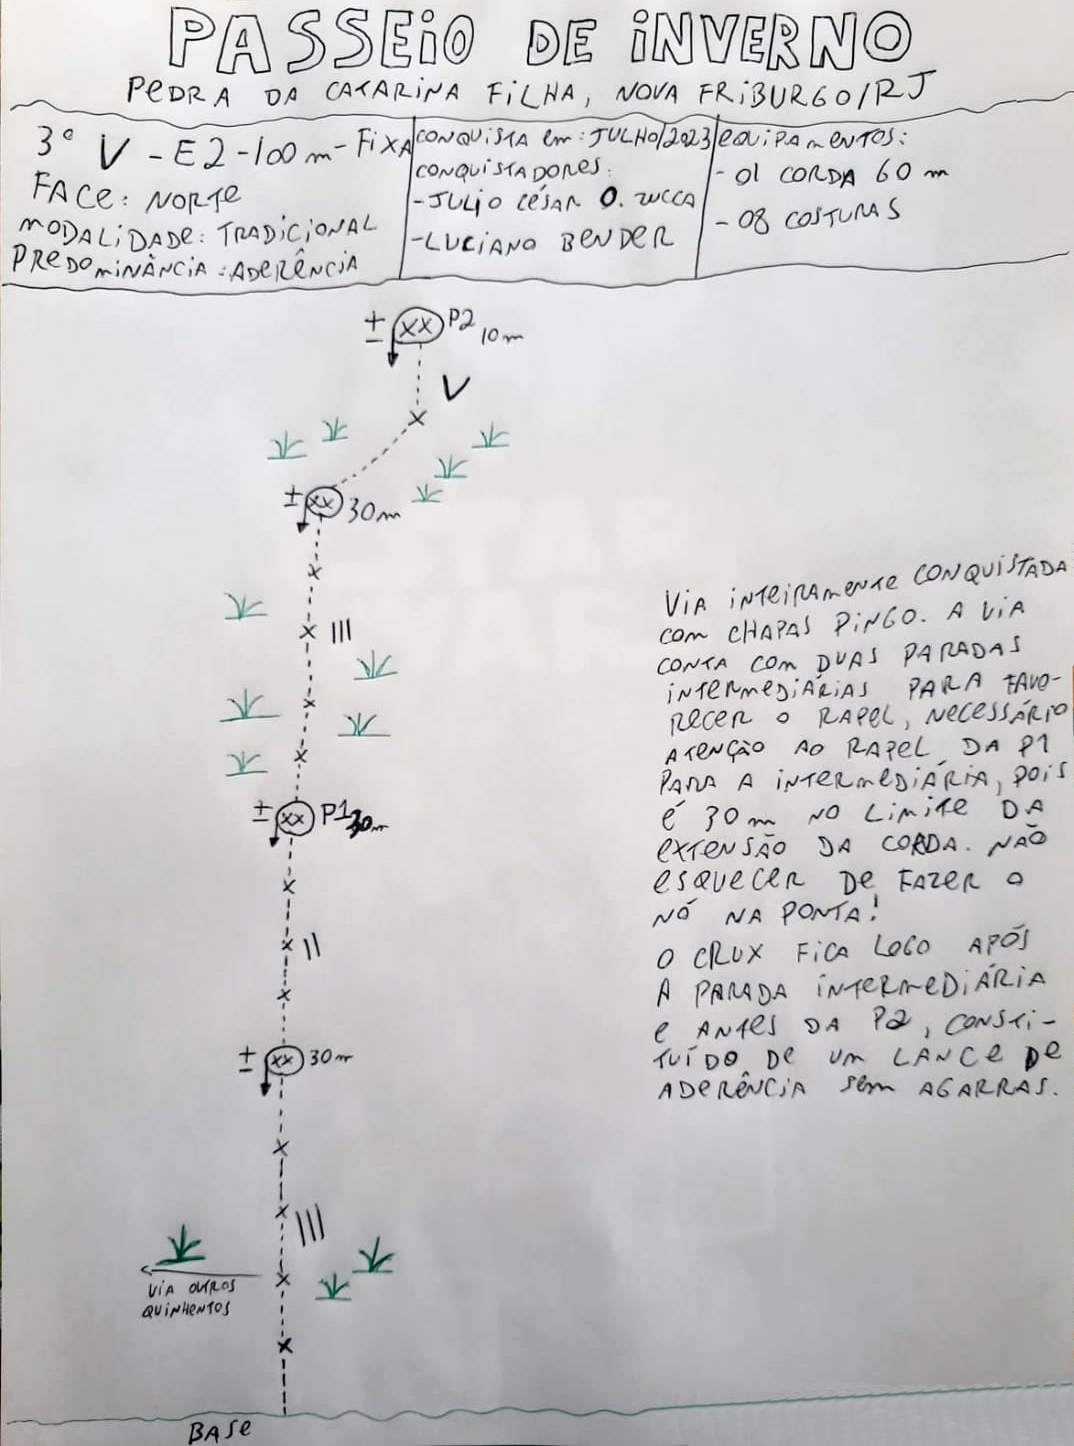 PASSEiO DE iNVERNO
PEDRA DA CATARINA FiLHA, NOVA FRiBURGO/RJ
3º V - E2 - 100 m - FixA
FACE: NORTE
MODALiDADE: TRADiCiONAL
PREDOMiNÂNCiA: ADERÊNCiA
CONQUiSTA em: JULHO/2023
CONQUiSTADORES:
- JULiO CÉSAR O. ZUCCA
- LUCiANO BENDER
EQUiPAMENTOS:
- 01 CORDA 60 m
- 08 COSTURAS
± XX P2 10m
V
± XX 30m
III
± XX P1 30m
II
± XX 30m
III
ViA OUTROS
QUiNHENTOS
BASE
ViA iNTEiRAMENTE CONQUiSTADA
COM CHAPAS PiNGO. A ViA
CONTA COM DUAS PARADAS
iNTERMEDiÁRiAS PARA FAVO-
RECER O RAPEL, NECESSÁRiO
ATENÇÃO AO RAPEL DA P1
PARA A iNTERMEDiÁRiA, POiS
É 30m NO LiMiTE DA
EXTENSÃO DA CORDA. NÃO
ESQUECER DE FAZER O
NÓ NA PONTA!
O CRUX FiCA LOGO APÓS
A PARADA iNTERMEDiÁRiA
E ANTES DA P2, CONSTi-
TUÍDO DE UM LANCE DE
ADERÊNCiA SEM AGARRAS.